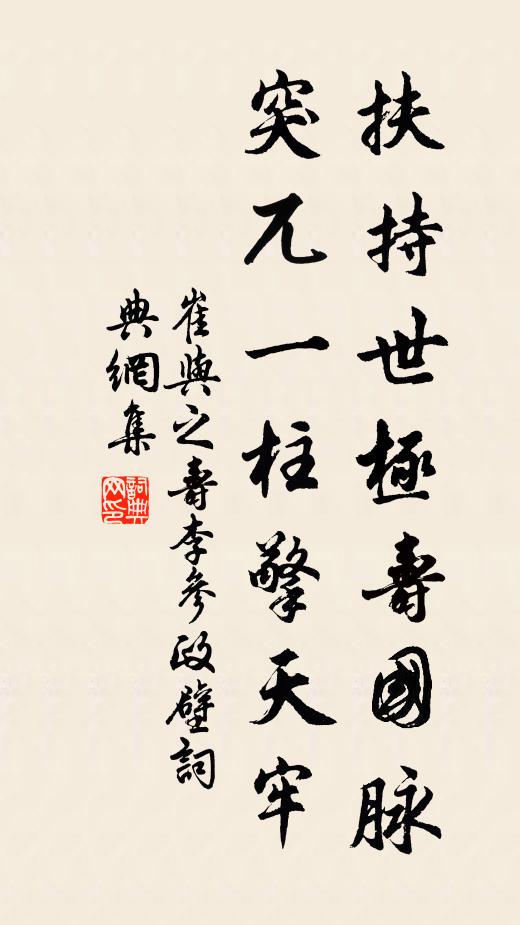 扶持世極壽國脉
突兀一柱擎天牢
崔與之壽李參政壁詞
典網集
詞典
网印